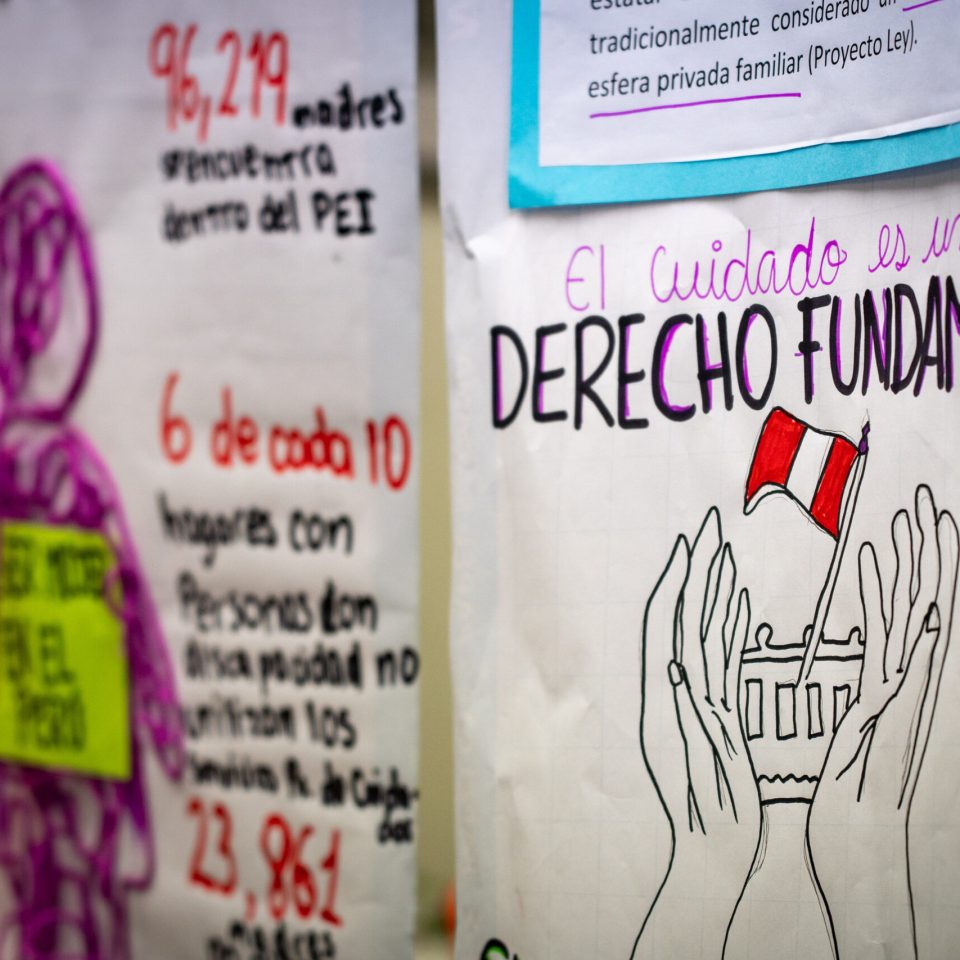 96,219 madres
se encuentra
dentro del PEI
6 de cada 10
hogares con
Personas don
discapacidad no
utilizan los
23,861
madres
EN EL
PERÚ
estatal
tradicionalmente considerado un
esfera privada familiar (Proyecto Ley).
El cuidado es un
DERECHO FUNDAM